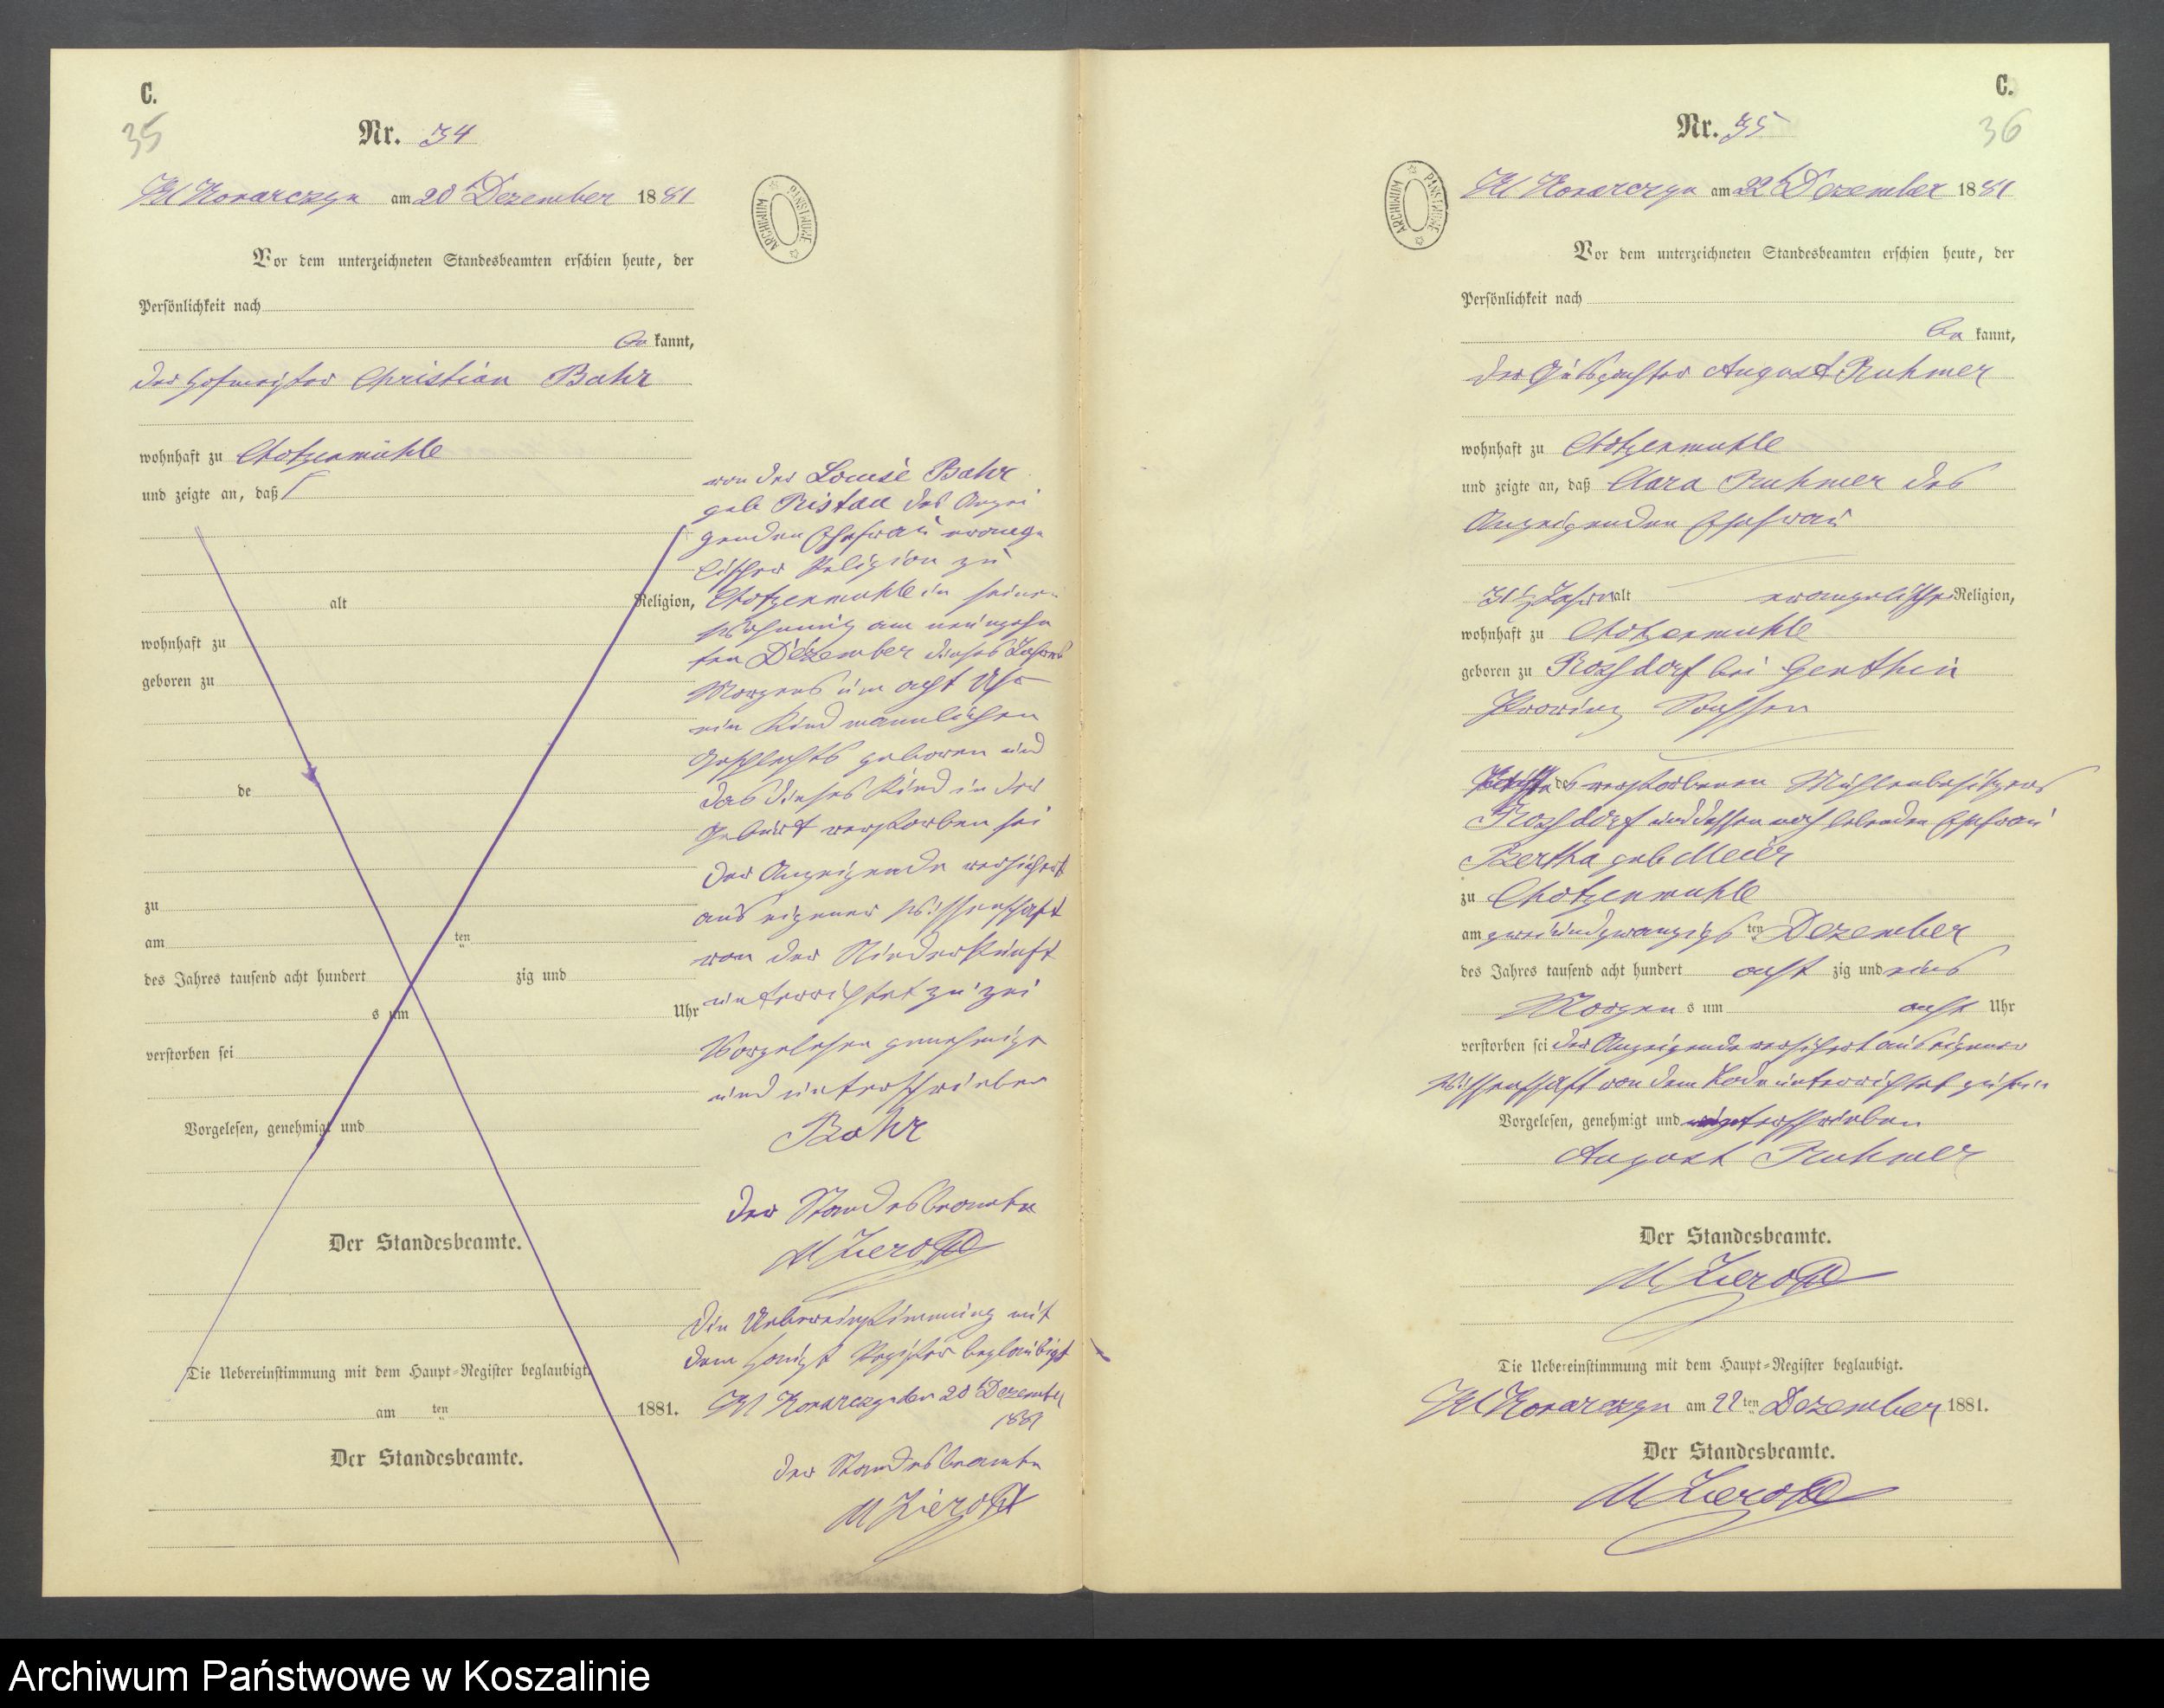 C.
35
Nr. 34
Kl Konarczyn am 20t Dezember 1881
ARCHIWUM PAŃSTWOWE
Vor dem unterzeichneten Standesbeamten erschien heute, der
Persönlichkeit nach
be kannt,
der Hofmeister Christian Bahr
wohnhaft zu Chotzenmühle
und zeigte an, daß
alt Religion,
wohnhaft zu
geboren zu
de
zu
am ten
des Jahres tausend acht hundert zig und
s um Uhr
verstorben sei
Vorgelesen, genehmigt und
Der Standesbeamte.
Die Uebereinstimmung mit dem Haupt-Register beglaubigt.
am ten 1881.
Der Standesbeamte.
von der Louise Bahr
geb Ristau des Anzei
genden Ehefrau evange
lischer Religion zu
Chotzenmühle in seiner
Wohnung am neunzehn
ten Dezember dieses Jahres
Morgens um acht Uhr
ein Kind mannlichen
Geschlechts geboren und
das dieses Kind in der
Geburt verstorben sei
der Anzeigende versichert
aus eigener Wissenschaft
von der Niederkunft
unterrichtet zu zei
Vorgelesen genehmigt
und unterschrieben
Bahr
der Standesbeamte
M Zieroth
die Uebereinstimmung mit
dem Haupt Register beglaubigt
Kl Konarczyn den 20t Dezember
1881
der Standesbeamte
M Zieroth
C.
36
Nr. 35
Kl Konarczyn am 22t Dezember 1881
ARCHIWUM PAŃSTWOWE
Vor dem unterzeichneten Standesbeamten erschien heute, der
Persönlichkeit nach
be kannt,
der Gutspachter August Ruhmer
wohnhaft zu Chotzenmuhle
und zeigte an, daß Clara Ruhmer des
Anzeigenden Ehefrau
31½ Jahre alt evangelischer Religion,
wohnhaft zu Chotzenmuhle
geboren zu Rossdorf bei Genthin
Provinz Sachssen
des verstorbenen Mühlenbesitzers
Rossdorf und dessen noch lebenden Ehefrau
Bertha geb Meier
zu Chotzenmuhle
am zweiundzwanzigs ten Dezember
des Jahres tausend acht hundert acht zig und eins
Morgen s um acht Uhr
verstorben sei der Anzeigende versichert aus eigener
Wissenschaft von dem Tode unterrichtet zu sein
Vorgelesen, genehmigt und unterschrieben
August Ruhmer
Der Standesbeamte.
M Zieroth
Die Uebereinstimmung mit dem Haupt-Register beglaubigt.
Kl Konarczyn am 22 ten Dezember 1881.
Der Standesbeamte.
M Zieroth
Archiwum Państwowe w Koszalinie